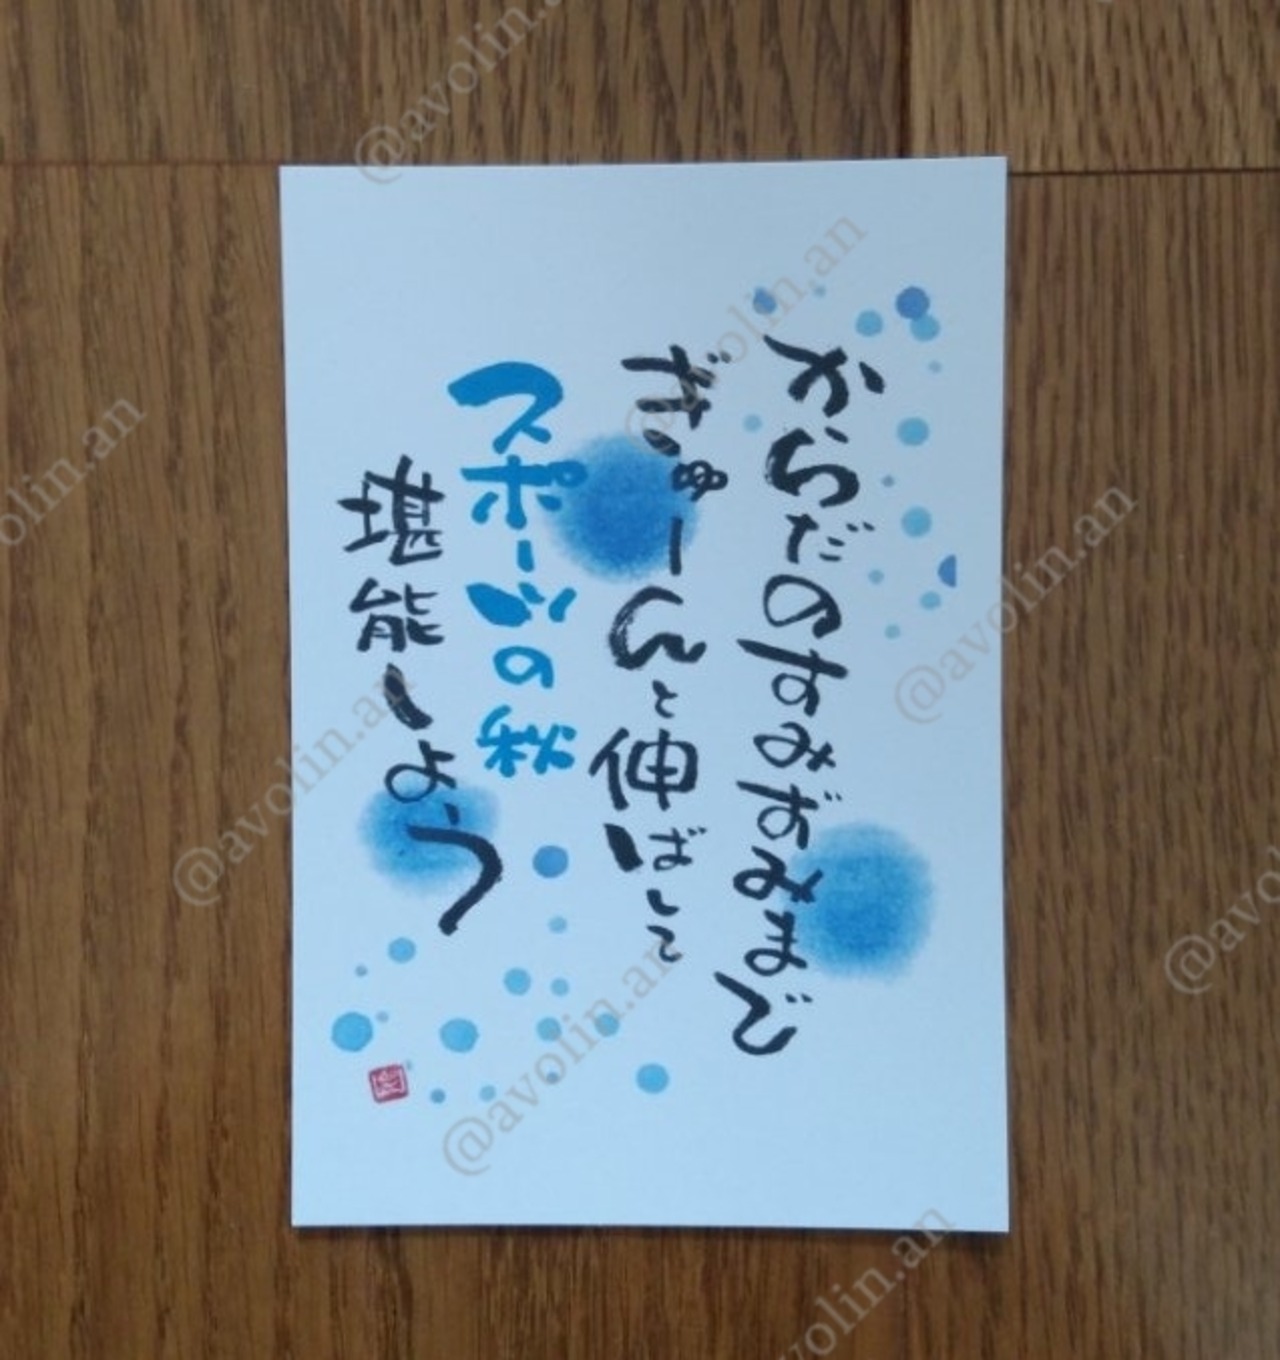 からだのすみずみまで
ぎゅーんと伸ばして
スポーツの秋
堪能しよう
@avolin.an
@avolin.an
@avolin.an
@avolin.an
@avolin.an